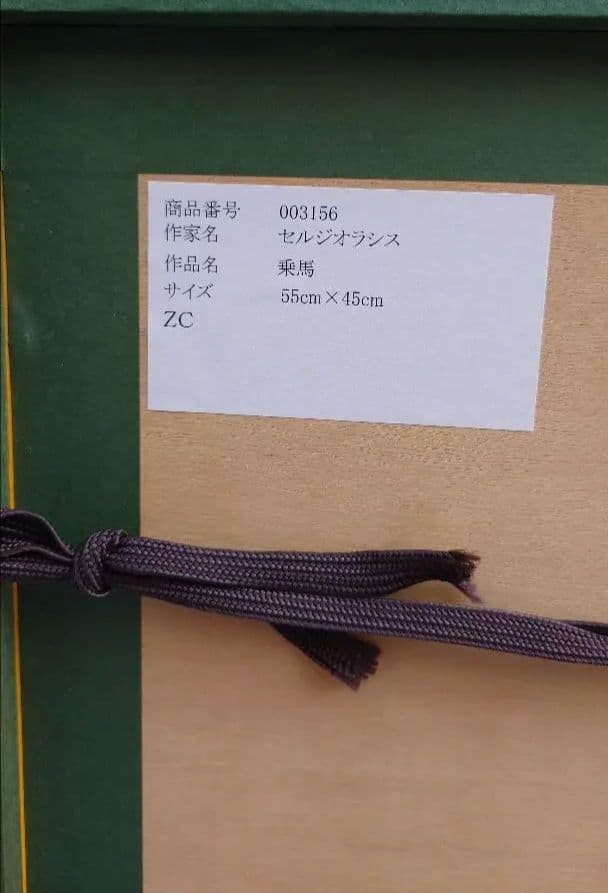 商品番号 003156
作家名 セルジオラシス
作品名 乗馬
サイズ 55cm×45cm
ZC